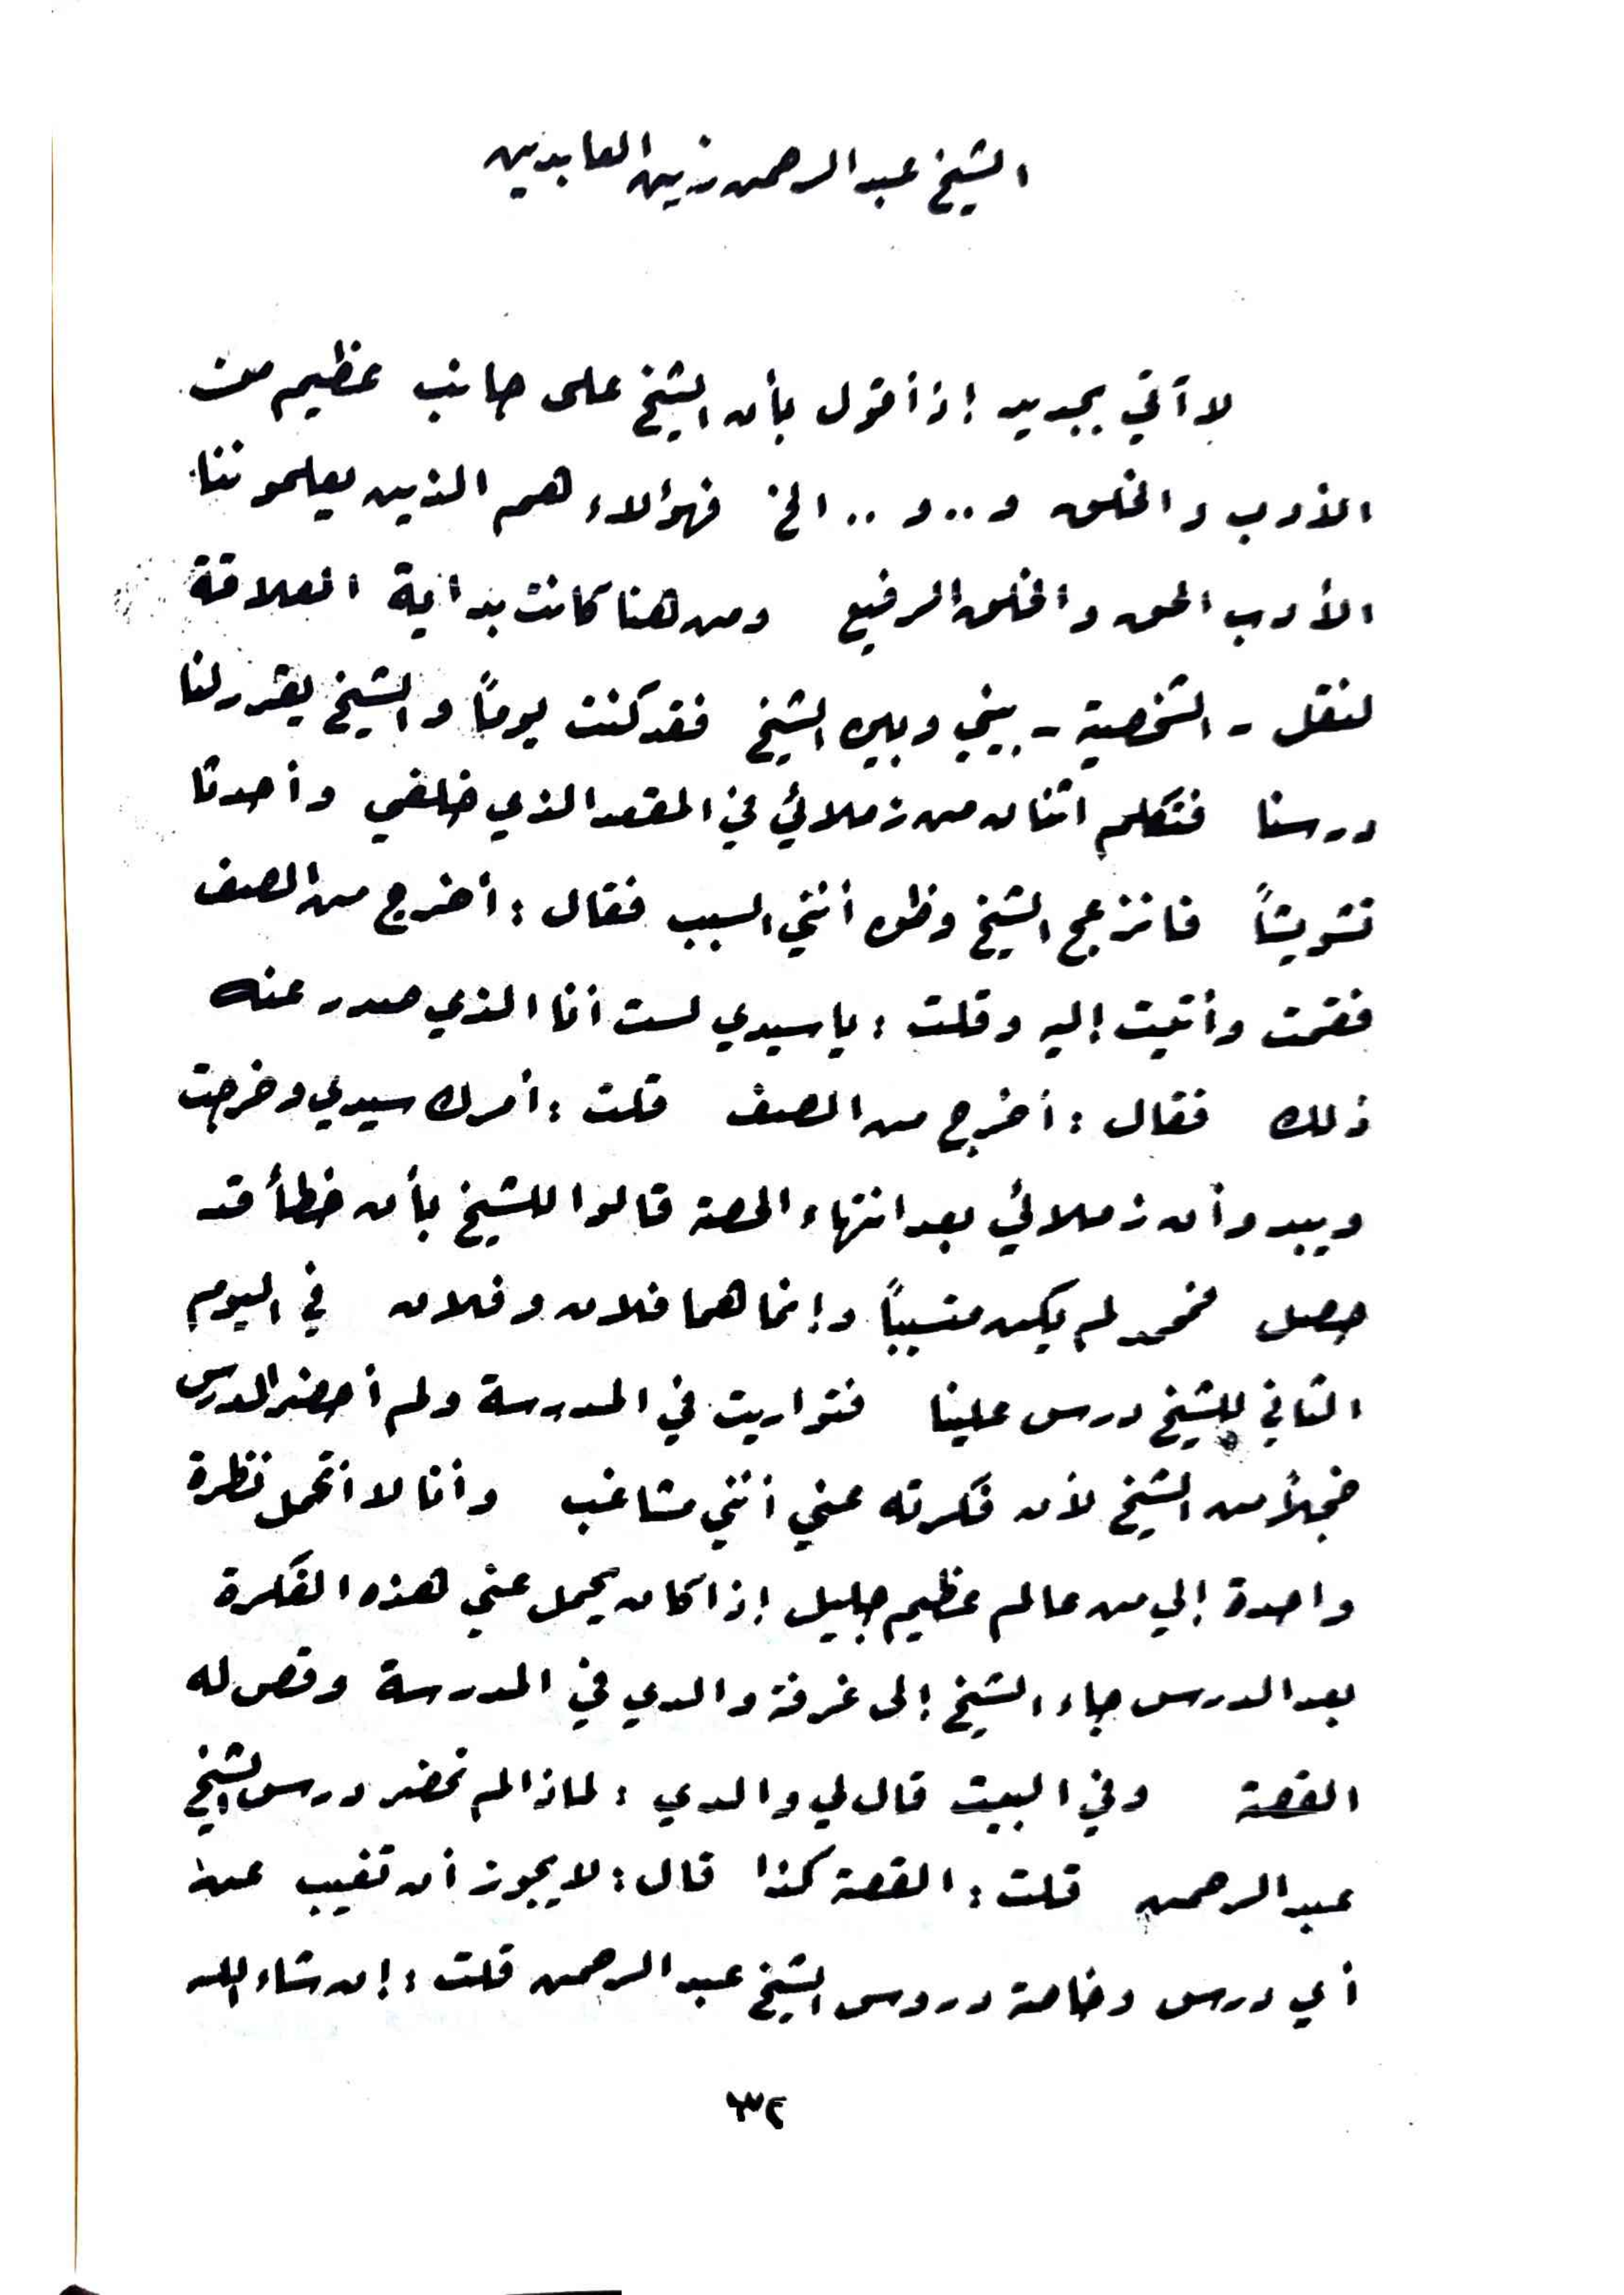 الشيخ عبد الرحمن زين العابدين
لا آتي بجديد إذ أقول بأن الشيخ على جانب عظيم من
الأدب والخلق و.. و.. الخ فهؤلاء هم الذين يعلموننا
الأدب الحق والخلق الرفيع ومن هنا كانت بداية العلاقة
لنقل - الشخصية - بيني وبين الشيخ فقد كنت يوماً والشيخ يقرر لنا
درسنا فتكلم اثنان من زملائي في المقعد الذي خلفي وأحدثا
تشويشاً فانزعج الشيخ وظن أنني السبب فقال : أخرج من الصف
فقمت وأتيت إليه وقلت : يا سيدي لست أنا الذي صدر عنه
ذلك فقال : أخرج من الصف قلت : أمرك سيدي وخرجت
ويبدو أن زملائي بعد انتهاء الحصة قالوا للشيخ بأن خطأ قد
حصل فمحمد لم يكن متسبباً وإنما هما فلان وفلان في اليوم
الثاني للشيخ درس علينا فتواريت في المدرسة ولم أحضر الدرس
خجلاً من الشيخ لأن فكرته عني أنني مشاغب وأنا لا أتحمل نظرة
واحدة إلي من عالم عظيم جليل إذا كان يحمل عني هذه الفكرة
بعد الدرس جاء الشيخ إلى غرفة والدي في المدرسة وقص له
القصة وفي البيت قال لي والدي : لماذا لم تحضر درس الشيخ
عبد الرحمن قلت : القصة كذا قال : لا يجوز أن تغيب عن
أي درس وخاصة دروس الشيخ عبد الرحمن قلت : إن شاء الله
٣٢